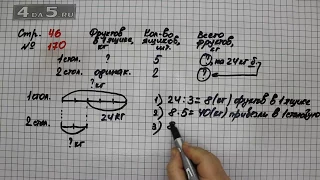 4DA5.RU
Стр. 46
№ 170
Фруктов в 1 ящике, кг
Кол-во ящиков, шт
Всего фруктов, кг
1 стол. ? 5 ?, на 24 кг б.
2 стол. одинак. 2 ?
? кг
1 стол.
24 кг
2 стол.
? кг
1) 24:3=8(кг) фруктов в 1 ящике
2) 8·5=40(кг) привезли в 1 столовую
3)